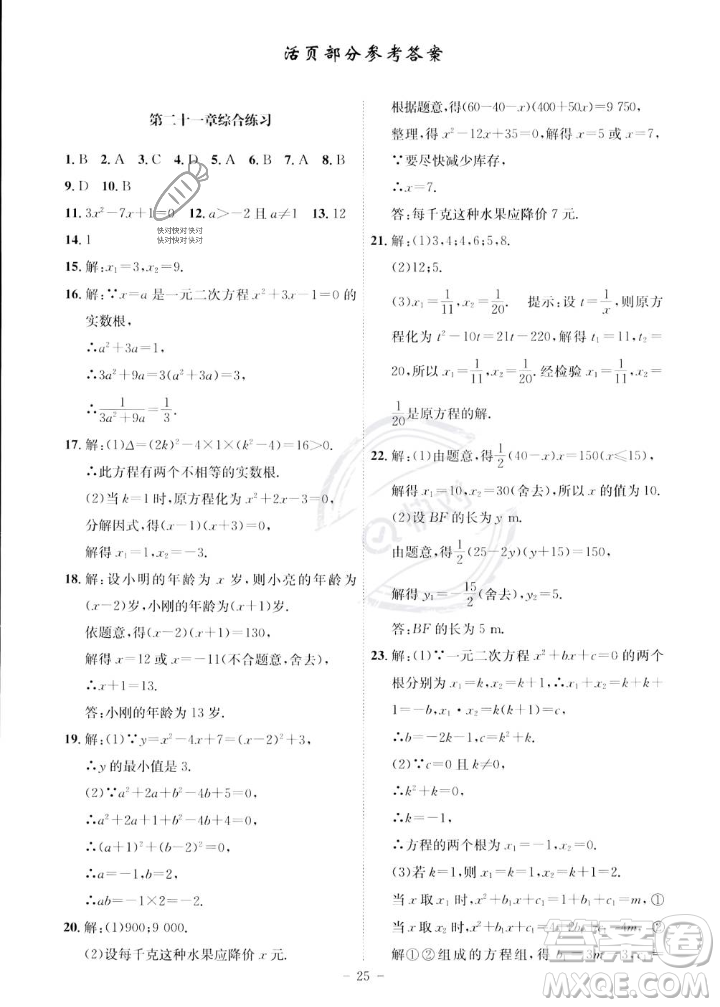 活页部分参考答案
第二十一章综合练习
1. B 2. A 3. C 4. D 5. A 6. B 7. A 8. B
9. D 10. B
11. 3x²-7x+1=0 12. a>-2 且 a≠1 13. 12
快对快对快对
快对快对快对
14. 1
15. 解:x₁=3,x₂=9.
16. 解:∵x=a 是一元二次方程 x²+3x-1=0 的
实数根,
∴a²+3a=1,
∴3a²+9a=3,
∴1/(3a²+9a)=1/3.
17. 解:(1)Δ=(2k)²-4×1×(k²-4)=16>0.
∴此方程有两个不相等的实数根.
(2)当 k=1时,原方程化为 x²-2x-3=0,
分解因式,得(x-3)(x+1)=0,
解得 x₁=3,x₂=-1.
18. 解:设小明的年龄为 x 岁,则小亮的年龄为
(x-2)岁,小刚的年龄为(x+1)岁.
依题意,得(x-2)(x+1)=130,
解得 x=12或 x=-11(不合题意,舍去).
∴x+1=13.
答:小刚的年龄为 13 岁.
19. 解:(1)∵y=x²-2x+4=(x-1)²+3,
∴y的最小值是 3.
(2)∵a²+2a+b²-4b+5=0,
∴a²+2a+1+b²-4b+4=0,
∴(a+1)²+(b-2)²=0,
∴a=-1,b=2,
∴ab=-1×2=-2.
20. 解:(1)900;9 000.
(2)设每千克这种水果应降价 x 元.
根据题意,得(60-40-x)(400+50x)=9 750,
整理,得 x²-12x+35=0. 解得 x=5或 x=7.
∵要尽快减少库存,
∴x=7.
答:每千克这种水果应降价 7 元.
21. 解:(1)3,4;4,6;5,8.
(2)12;5.
(3)x₁=1/11,x₂=1/20. 提示:设 t=1/x,则原方
程化为 t²-10t=21t-220,解得 t₁=11,t₂=
20,所以 x₁=1/11,x₂=1/20. 经检验 x₁=1/11,x₂=
1/20是原方程的解.
22. 解:(1)由题意,得1/2(40-x)x=150(x≤15),
解得 x₁=10,x₂=30(舍去),所以 x 的值为 10.
(2)设 BF 的长为 y m.
由题意,得1/2(25-2y)(y+15)=150,
解得 y₁=-15/2(舍去),y₂=5.
答:BF 的长为 5 m.
23. 解:(1)∵一元二次方程 x²+bx+c=0 的两个
根分别为 x₁=k,x₂=k+1,∴x₁+x₂=k+k+1
=-b,x₁·x₂=k(k+1)=c,
∴b=-2k-1,c=k²+k.
(2)∵c=k²+k=0 且 k<0,
∴k=-1,
∴方程的两个根为 x₁=-1,x₂=0.
(3)若 k=1,则 x₁=1,x₂=2.
当 x 取 x₁ 时,x²+b₁x+c₁=c₁=m,①
当 x 取 x₂ 时,x²+b₁x+c₁=
解①②组成的方程组,得 b₁=-3,c₁=
— 25 —
答案圈
MXQE.COM